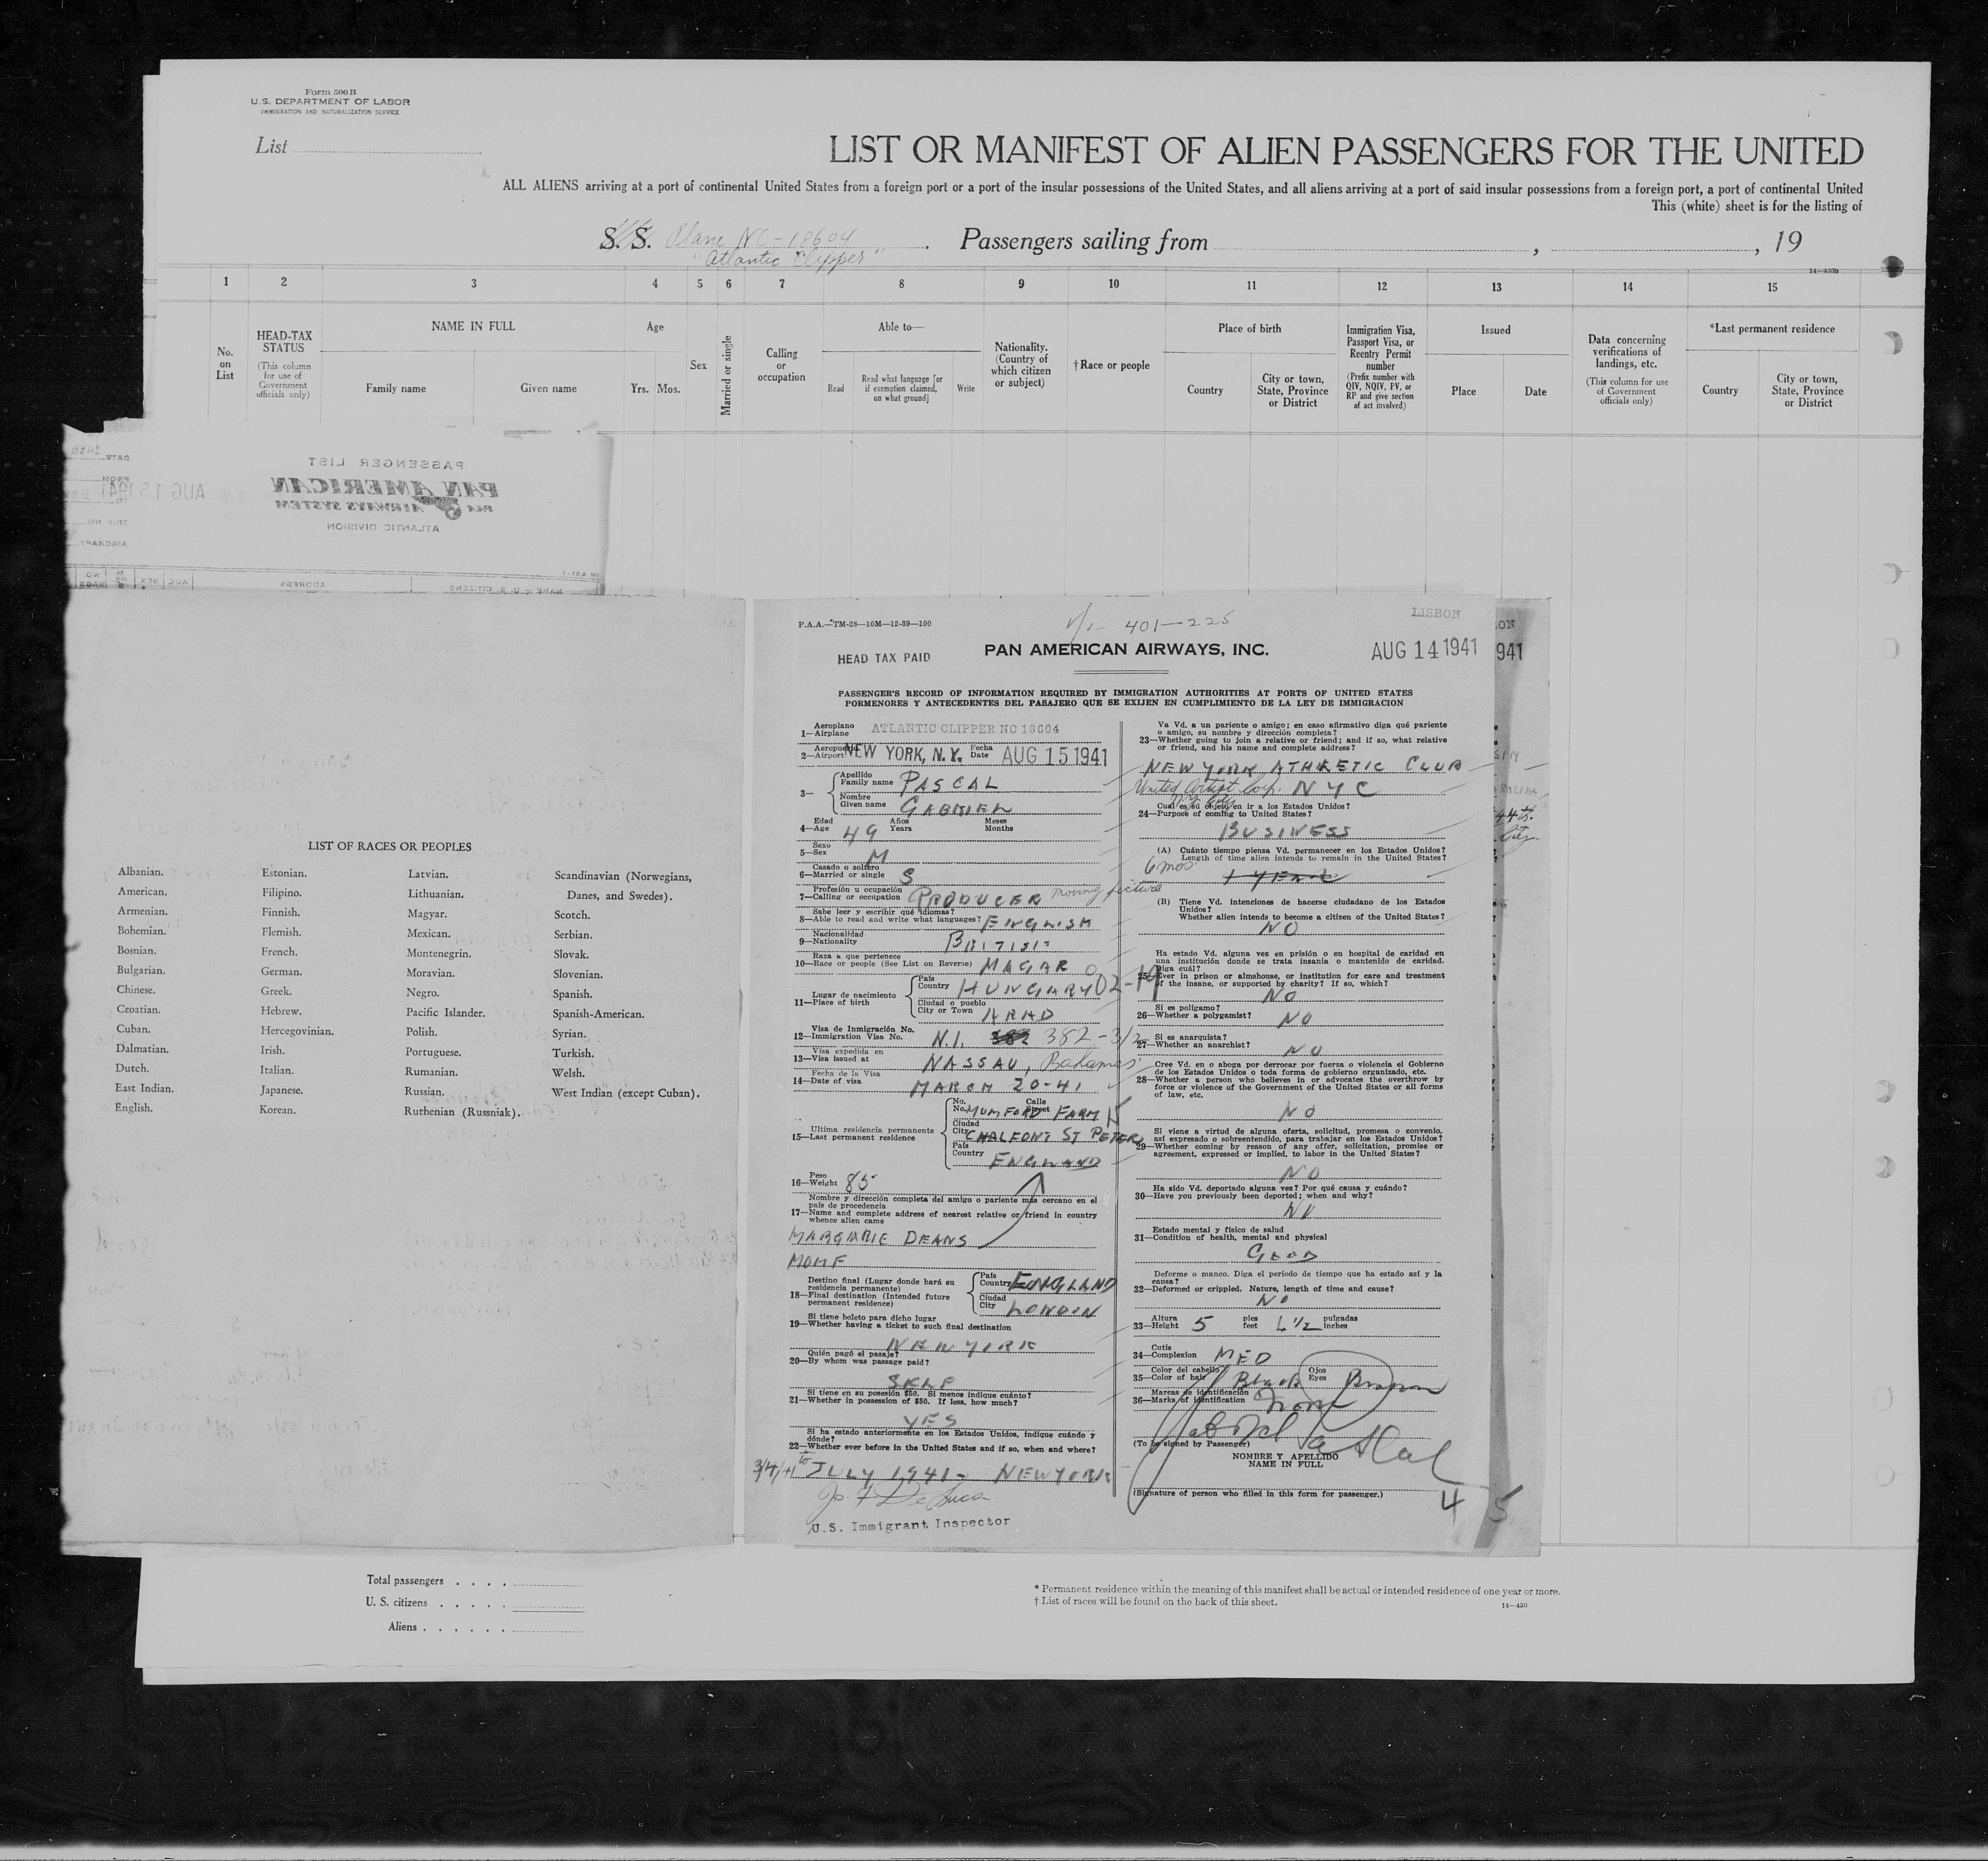 Form 500 B
U.S. DEPARTMENT OF LABOR
IMMIGRATION AND NATURALIZATION SERVICE
List
LIST OR MANIFEST OF ALIEN PASSENGERS FOR THE UNITED
ALL ALIENS arriving at a port of continental United States from a foreign port or a port of the insular possessions of the United States, and all aliens arriving at a port of said insular possessions from a foreign port, a port of continental United
This (white) sheet is for the listing of
S. S. Plane NC-18604 . Passengers sailing from , , 19
"Atlantic Clipper"
14—430b
1 2 3 4 5 6 7 8 9 10 11 12 13 14 15
No. on List
HEAD-TAX STATUS
(This column for use of Government officials only)
NAME IN FULL
Family name
Given name
Age
Yrs. Mos.
Sex
Married or single
Calling or occupation
Able to—
Read
Read what language [or if exemption claimed, on what ground]
Write
Nationality. (Country of which citizen or subject)
†Race or people
Place of birth
Country
City or town, State, Province or District
Immigration Visa, Passport Visa, or Reentry Permit number
(Prefix number with QIV, NQIV, PV, or RP and give section of act involved)
Issued
Place
Date
Data concerning verifications of landings, etc.
(This column for use of Government officials only)
*Last permanent residence
Country
City or town, State, Province or District
PASSENGER LIST
PAN AMERICAN
AIRWAYS SYSTEM
ATLANTIC DIVISION
AUG 15 1941
DATE
FROM
TO
TRIP NO.
AIRCRAFT
ADDRESS
AGE
SEX
LIST OF RACES OR PEOPLES
Albanian. Estonian. Latvian. Scandinavian (Norwegians,
American. Filipino. Lithuanian. Danes, and Swedes).
Armenian. Finnish. Magyar. Scotch.
Bohemian. Flemish. Mexican. Serbian.
Bosnian. French. Montenegrin. Slovak.
Bulgarian. German. Moravian. Slovenian.
Chinese. Greek. Negro. Spanish.
Croatian. Hebrew. Pacific Islander. Spanish-American.
Cuban. Hercegovinian. Polish. Syrian.
Dalmatian. Irish. Portuguese. Turkish.
Dutch. Italian. Rumanian. Welsh.
East Indian. Japanese. Russian. West Indian (except Cuban).
English. Korean. Ruthenian (Russniak).
P.A.A.—TM-28—10M—12-39—100
401—225
LISBON
HEAD TAX PAID
PAN AMERICAN AIRWAYS, INC.
AUG 14 1941
941
PASSENGER'S RECORD OF INFORMATION REQUIRED BY IMMIGRATION AUTHORITIES AT PORTS OF UNITED STATES
PORMENORES Y ANTECEDENTES DEL PASAJERO QUE SE EXIJEN EN CUMPLIMIENTO DE LA LEY DE IMMIGRACION
Aeroplano
1—Airplane ATLANTIC CLIPPER NC 18604
Aeropuerto
2—Airport NEW YORK, N.Y. Fecha Date AUG 15 1941
3— Apellido
Family name PASCAL
Nombre
Given name GABRIEL
Edad Años Meses
4—Age 49 Years Months
Sexo
5—Sex M
Casado o soltero
6—Married or single S
Profesión u ocupación
7—Calling or occupation PRODUCER moving picture
Sabe leer y escribir qué idiomas?
8—Able to read and write what languages? ENGLISH
Nacionalidad
9—Nationality BRITISH
Raza a que pertenece
10—Race or people (See List on Reverse) MAGAR
Lugar de nacimiento
11—Place of birth
País
Country HUNGARY 02-19
Ciudad o pueblo
City or Town ARAD
Visa de Inmigración No.
12—Immigration Visa No. N.I. 382-3/2
Visa expedida en
13—Visa issued at NASSAU, Bahamas
Fecha de la Visa
14—Date of visa MARCH 20-41
Ultima residencia permanente
15—Last permanent residence
No. Calle
No. Street MUMFORD FARM
Ciudad
City CHALFONT ST PETER
País
Country ENGLAND
Peso
16—Weight 85
Nombre y dirección completa del amigo o pariente más cercano en el
país de procedencia
17—Name and complete address of nearest relative or friend in country
whence alien came
MARGARIE DEANS
HOME
Destino final (Lugar donde hará su
residencia permanente)
18—Final destination (Intended future
permanent residence)
País
Country ENGLAND
Ciudad
City LONDON
Si tiene boleto para dicho lugar
19—Whether having a ticket to such final destination
NEW YORK
Quién pagó el pasaje?
20—By whom was passage paid?
SELF
Si tiene en su posesión $50. Si menos indique cuánto?
21—Whether in possession of $50. If less, how much?
YES
Si ha estado anteriormente en los Estados Unidos, indique cuándo y
dónde?
22—Whether ever before in the United States and if so, when and where?
3/4/41 to JULY 1941- NEW YORK
U.S. Immigrant Inspector
Va Vd. a un pariente o amigo; en caso afirmativo diga qué pariente
o amigo, su nombre y dirección completa?
23—Whether going to join a relative or friend; and if so, what relative
or friend, and his name and complete address?
NEW YORK ATHLETIC CLUB
United Artist Corp. NYC
Cual es su objeto en ir a los Estados Unidos?
24—Purpose of coming to United States?
BUSINESS
(A) Cuánto tiempo piensa Vd. permanecer en los Estados Unidos?
Length of time alien intends to remain in the United States?
6 mos. 1 YEAR
(B) Tiene Vd. intenciones de hacerse ciudadano de los Estados
Unidos?
Whether alien intends to become a citizen of the United States?
NO
Ha estado Vd. alguna vez en prisión o en hospital de caridad en
una institución donde se trata insania o mantenido de caridad.
Diga cuál?
25—Ever in prison or almshouse, or institution for care and treatment
of the insane, or supported by charity? If so, which?
NO
Si es polígamo?
26—Whether a polygamist? NO
Si es anarquista?
27—Whether an anarchist? NO
Cree Vd. en o aboga por derrocar por fuerza o violencia el Gobierno
de los Estados Unidos o toda forma de gobierno organizado, etc.
28—Whether a person who believes in or advocates the overthrow by
force or violence of the Government of the United States or all forms
of law, etc.
NO
Si viene a virtud de alguna oferta, solicitud, promesa o convenio,
así expresado o sobreentendido, para trabajar en los Estados Unidos?
29—Whether coming by reason of any offer, solicitation, promise or
agreement, expressed or implied, to labor in the United States?
NO
Ha sido Vd. deportado alguna vez? Por qué causa y cuándo?
30—Have you previously been deported; when and why?
NO
Estado mental y físico de salud
31—Condition of health, mental and physical
GOOD
Deforme o manco. Diga el período de tiempo que ha estado así y la
causa?
32—Deformed or crippled. Nature, length of time and cause?
NO
Altura pies pulgadas
33—Height 5 feet 6 1/2 inches
Cutis
34—Complexion MED
Color del cabello Ojos
35—Color of hair Black Eyes Brown
Marcas de identificación
36—Marks of identification none
Gabriel Pascal
(To be signed by Passenger)
NOMBRE Y APELLIDO
NAME IN FULL
(Signature of person who filled in this form for passenger.)
4 5
Total passengers . . . .
U. S. citizens . . . . .
Aliens . . . . . .
* Permanent residence within the meaning of this manifest shall be actual or intended residence of one year or more.
† List of races will be found on the back of this sheet.
14—430